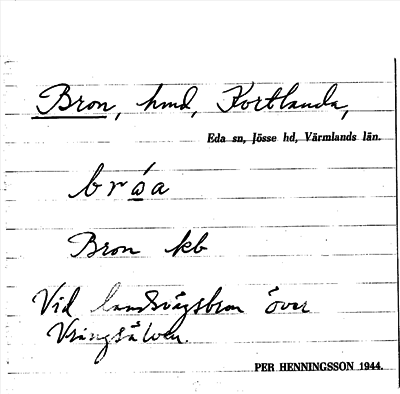 Bron, hmd, Kortlanda,
Eda sn, Jösse hd, Värmlands län.
bróa
Bron kb
Vid landsvägsbron över
Vrångsälven.
PER HENNINGSSON 1944.